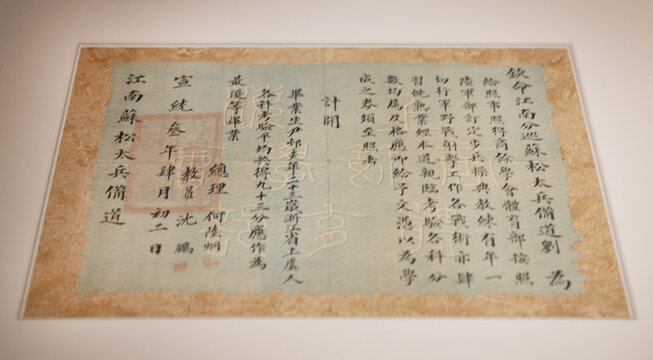 欽命江南分巡蘇松太兵備道劉 為
給照事照得商餘學會體育部按照
陸軍部訂定步兵操典教練有年一
切行軍野戰射擊工作各戰術亦肆
習純熟業經本道親臨考驗各科分
數均屬及格應即給予文憑以為學
成之券須至照者
計開
畢業生尹邨夫年二十三歲浙江省上虞人
各科考驗平均共得九十三分應作為
最優等畢業
總理 何陸炯
教員 沈鵬
宣統叁年肆月初二日
江南蘇松太兵備道